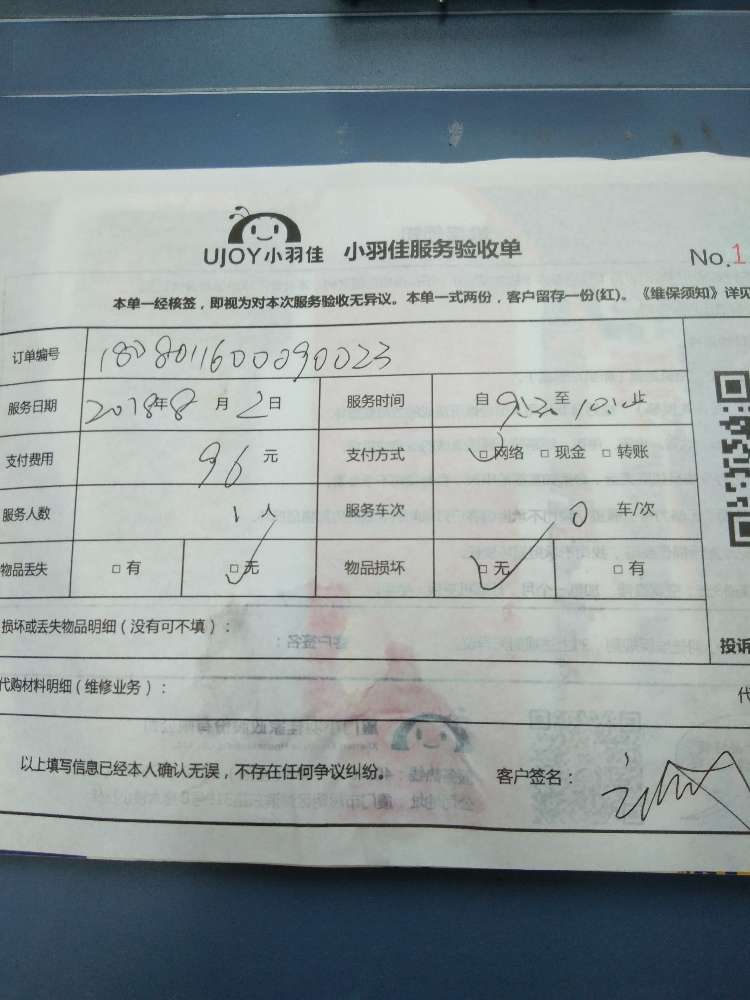 UJOY小羽佳 小羽佳服务验收单 No.1
本单一经核签，即视为对本次服务验收无异议。本单一式两份，客户留存一份(红)。《维保须知》详见
订单编号 1808011600090023
服务日期 2018年8月2日 服务时间 自 至 止
支付费用 96元 支付方式 □网络 □现金 □转账
服务人数 1人 服务车次 0车/次
物品丢失 □有 □无 物品损坏 □无 □有
损坏或丢失物品明细（没有可不填）：
投诉
代购材料明细（维修业务）：
以上填写信息已经本人确认无误，不存在任何争议纠纷。 客户签名：